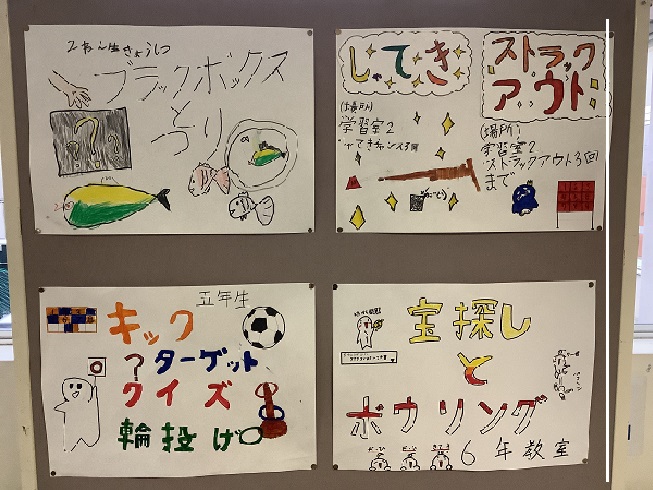 2ねん生きょうしつ
ブラックボックス
と
つり
しゃてき
(場所)
学習室2
ストラック
アウト
(場所)
学習室2
ストラックアウト3回
まで
五年生
キック
?ターゲット
クイズ
輪投げ
宝探し
と
ボウリング
6年教室